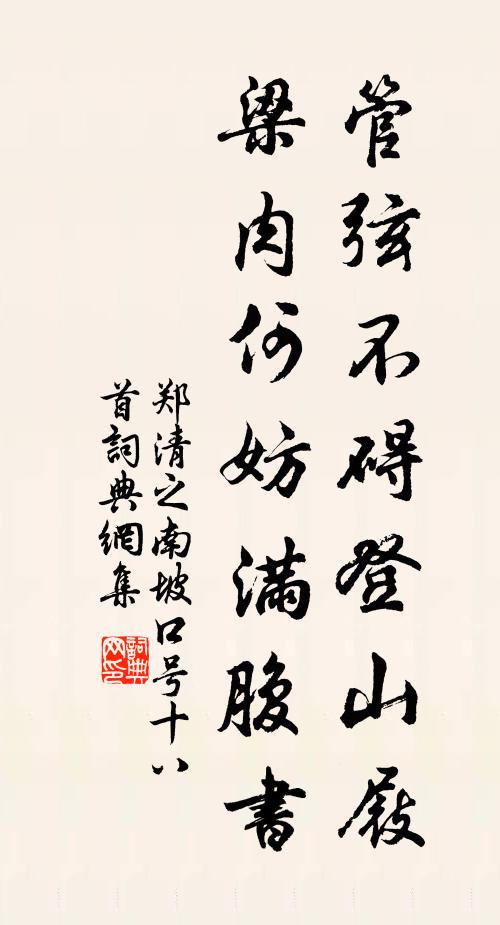 管弦不碍登山屐
梁肉何妨满腹書
郑清之南坡口号十八
首詞典網集
詞典网印